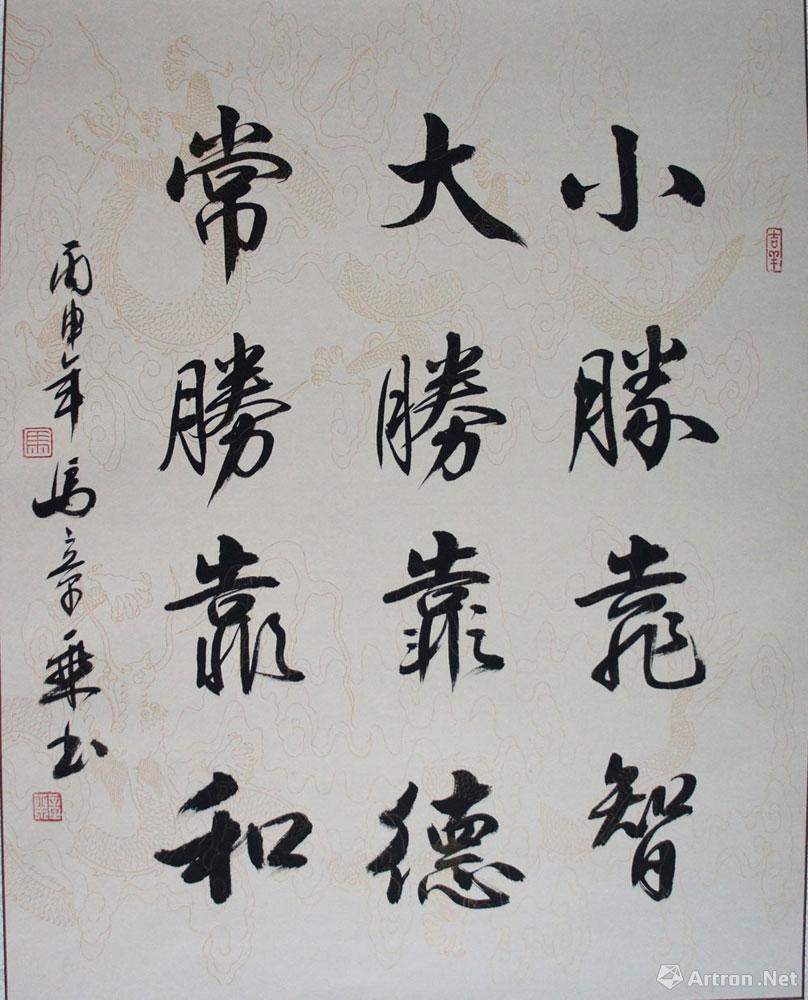 小勝靠智
大勝靠德
常勝靠和
丙申年馮章乘书
Artron.Net